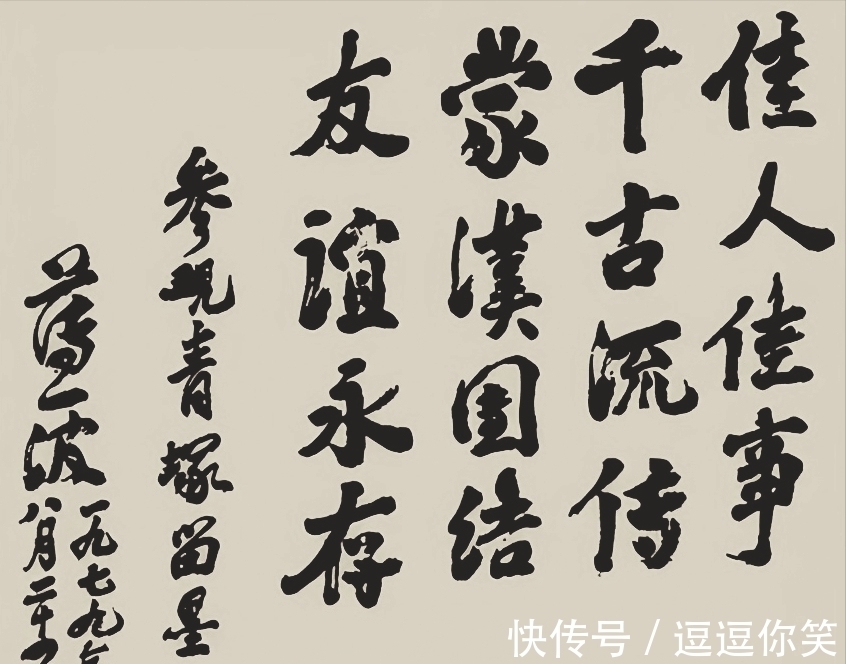 佳人佳事
千古流傳
蒙漢團結
友誼永存
参观青塚留墨
薄一波
一九七九年
八月二十
快传号 / 逗逗你笑